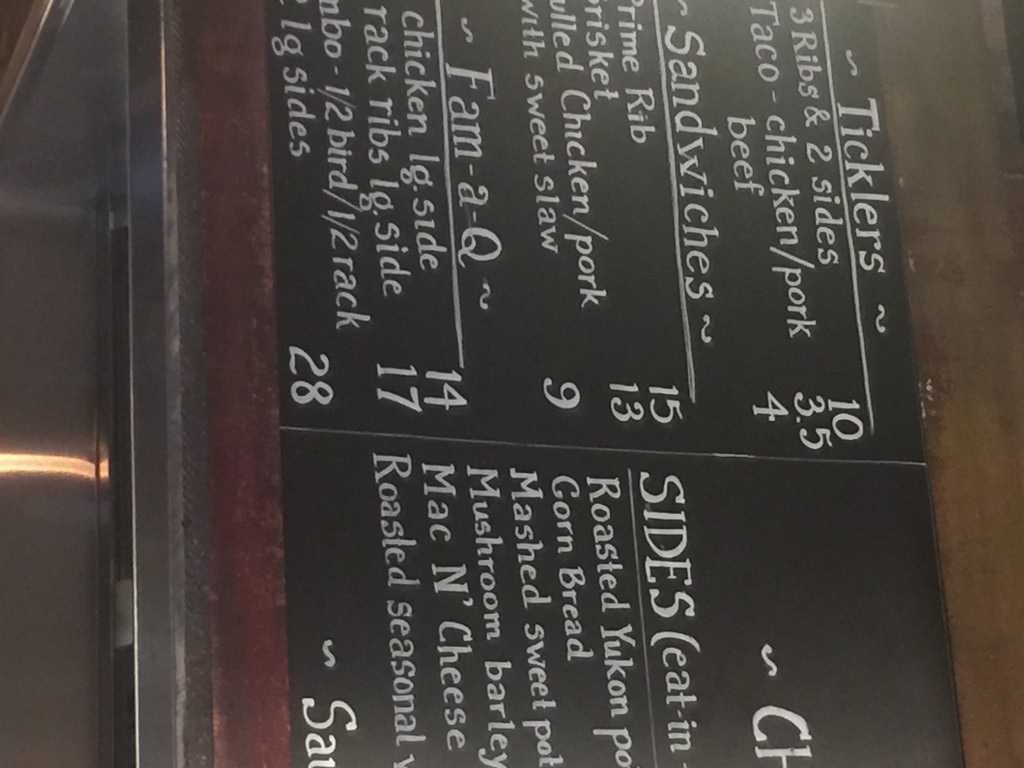 ~ Ticklers ~
3 Ribs & 2 sides 10
Taco - chicken/pork 3.5
beef 4
~ Sandwiches ~
Prime Rib 15
Brisket 13
Pulled Chicken/pork
with sweet slaw 9
~ Fam-a-Q ~
chicken lg. side 14
rack ribs lg. side 17
1/2 bird/1/2 rack
lg sides 28
SIDES (eat-in
Roasted Yukon
Corn Bread
Mashed sweet
Mushroom barley
Mac N' Cheese
Roasted seasonal
~
~